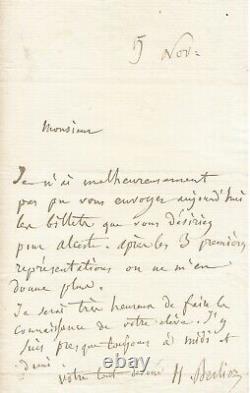 5 Nov.
Monsieur
Je n'ai malheureusement
pas pu vous envoyer aujourd'hui
les billets que vous désiriez
pour alceste. après les 3 premières
représentations on ne m'en
donne plus.
Je serai très heureux de faire la
connaissance de votre élève. J'y
suis presque toujours à midi et
demi.
votre tout dévoué H. Berlioz